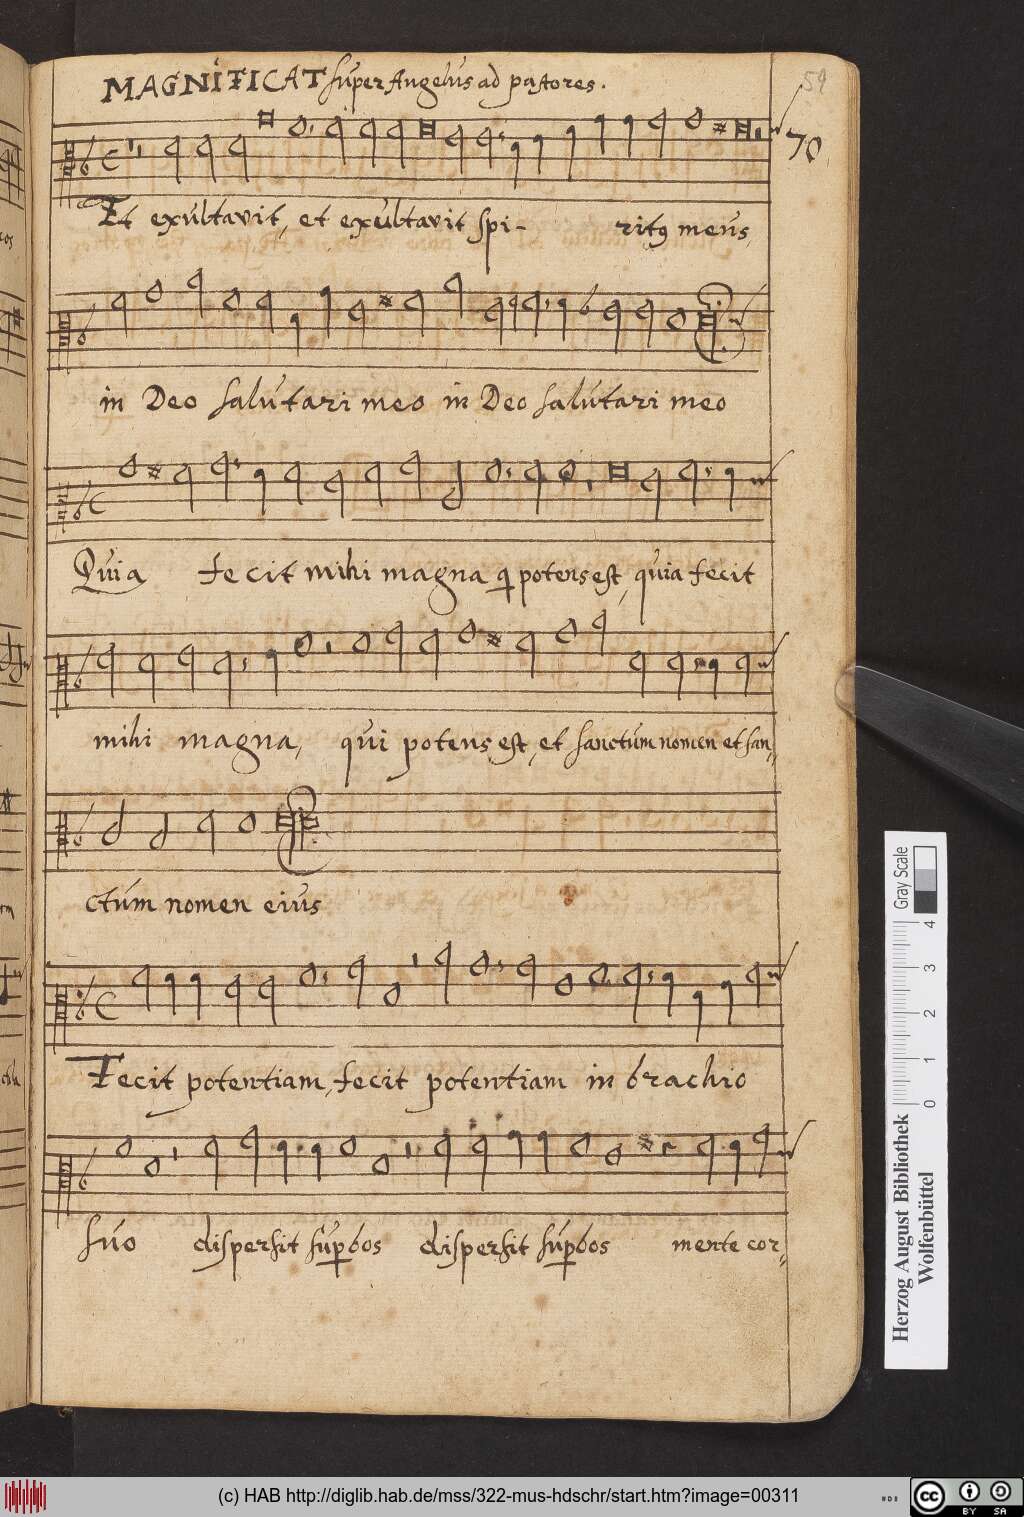 MAGNIFICAT super Angelus ad pastores.
59
70
Et exultavit, et exultavit spi- ritꝰ meus,
in Deo salutari meo in Deo salutari meo
Quia fecit mihi magna q potens est, quia fecit
mihi magna, qui potens est, et sanctum nomen et san-
ctum nomen eius
Fecit potentiam, fecit potentiam in brachio
suo dispersit suꝑbos dispersit suꝑbos mente cor-
Gray Scale
0 1 2 3 4
Herzog August Bibliothek
Wolfenbüttel
(c) HAB http://diglib.hab.de/mss/322-mus-hdschr/start.htm?image=00311
cc BY SA